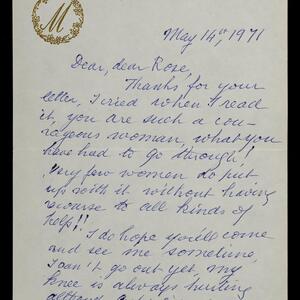 M
May 14th, 1971
Dear, dear Rose,
Thanks for your
letter, I cried when I read
it, you are such a cou-
rageous woman, what you
have had to go through!
Very few women do put
up with it without having
recourse to all kinds of
help!!
I do hope you'll come
and see me sometime,
I can't go out yet, my
knee is always hurting